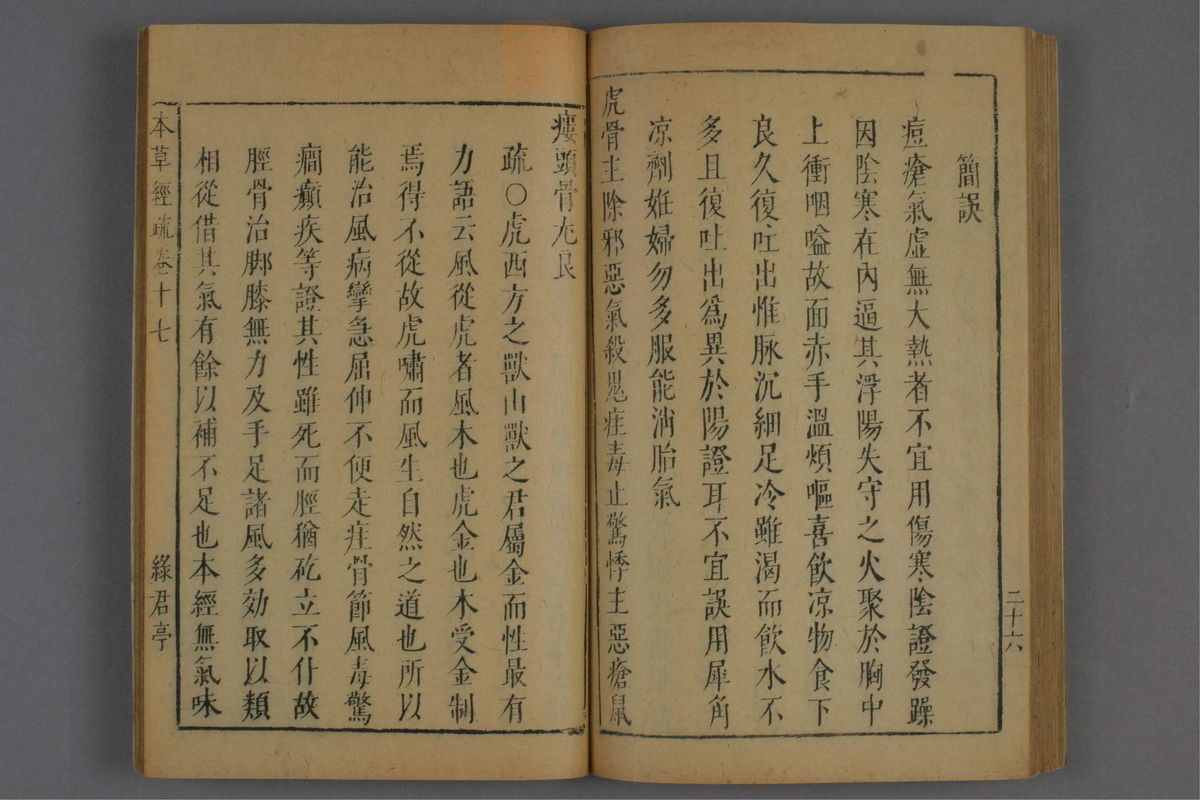 二十六
簡誤
痘瘡氣虛無大熱者不宜用傷寒陰證發躁
因陰寒在內逼其浮陽失守之火聚於胸中
上衝咽嗌故面赤手溫煩嘔喜飲凉物食下
良久復吐出惟脉沉細足冷雖渴而飲水不
多且復吐出爲異於陽證耳不宜誤用犀角
凉劑妊婦勿多服能消胎氣
虎骨主除邪惡氣殺鬼疰毒止驚悸主惡瘡鼠
瘻頭骨尤良
疏〇虎西方之獸山獸之君屬金而性最有
力語云風從虎者風木也虎金也木受金制
焉得不從故虎嘯而風生自然之道也所以
能治風病攣急屈伸不便走疰骨節風毒驚
癎癲疾等證其性雖死而脛猶矻立不仆故
脛骨治脚膝無力及手足諸風多効取以類
相從借其氣有餘以補不足也本經無氣味
本草經疏卷十七
綠君亭